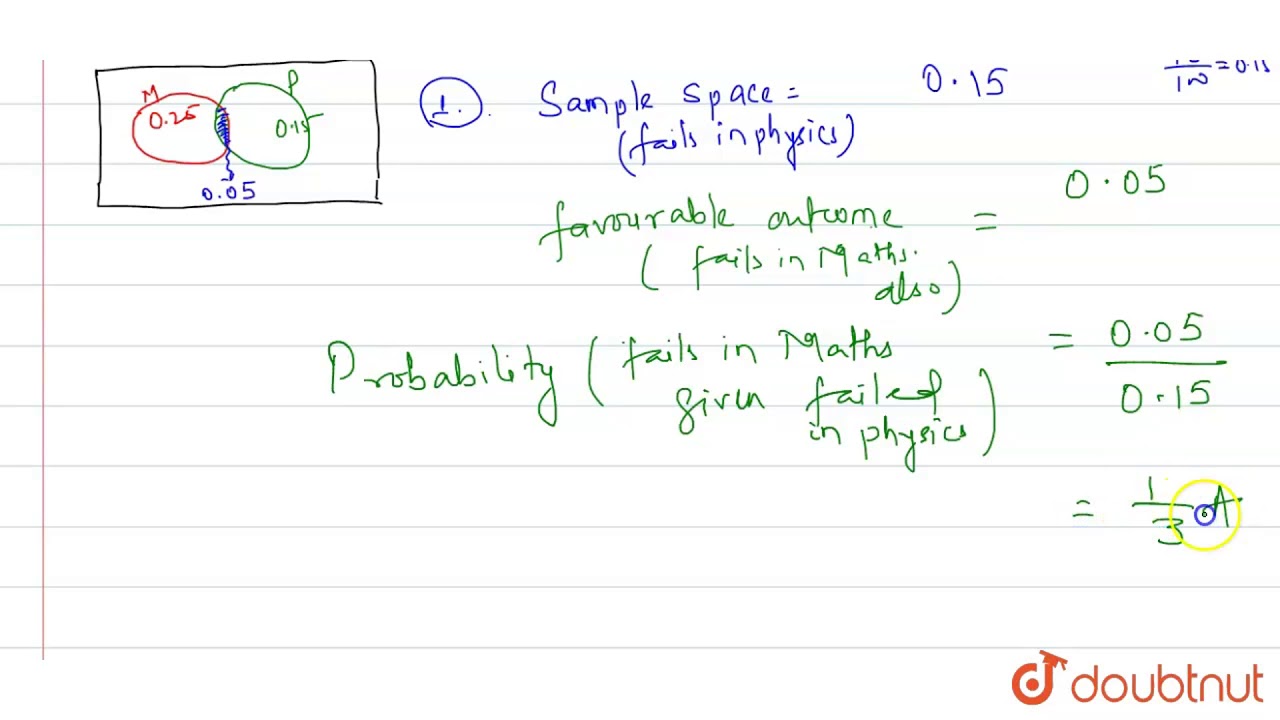 M P
0.25 0.15
0.05
1. Sample space = 0.15
(fails in physics)
100 = 0.15
favourable outcome = 0.05
(fails in Maths.
also)
Probability (fails in Maths = 0.05
given failed 0.15
in physics)
= 1
3 A
doubtnut